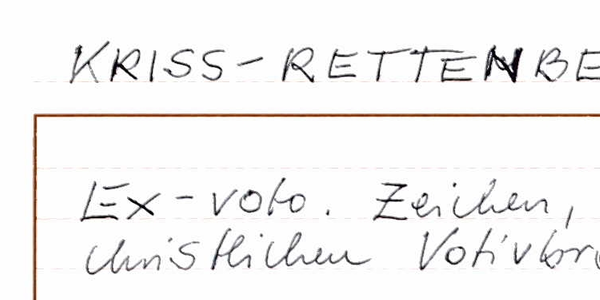 KRISS-RETTENBE
Ex-voto. Zeichen,
christlichen Votivbra